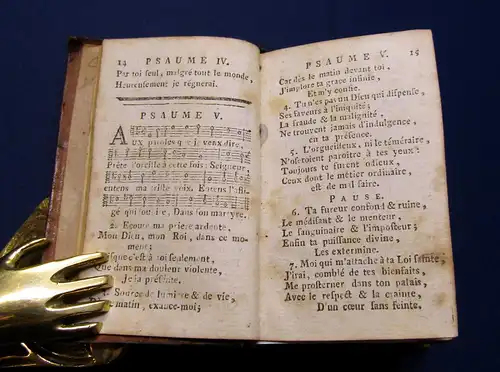 14 PSAUME IV.
Par toi seul, malgré tout le monde,
Heureusement je régnerai.
PSAUME V.
AUX paroles que je veux dire,
Prête l'oreille à cette fois: Seigneur,
entens ma triste voix. Entens l'afli-
gé qui soupire, Dans son martyre.
2. Ecoute ma priere ardente,
Mon Dieu, mon Roi, dans ce mo-
ment;
Puisque c'est à toi seulement,
Que dans ma douleur violente,
Je la présente.
3. Source de lumiere & de vie,
Dès le matin, exauce-moi;
PSAUME V. 15
Car dès le matin devant toi,
J'implore ta grace infinie,
Et m'y confie.
4. Tu n'es pas un Dieu qui dispense,
Ses faveurs à l'iniquité;
La fraude & la malignité,
Ne trouvent jamais d'indulgence,
en ta présence.
5. L'orgueilleux, ni le téméraire,
N'osent paroître à tes yeux:
Toujours te furent odieux,
Ceux dont le métier ordinaire,
est de mal faire.
PAUSE.
6. Ta fureur confond & ruine,
Le médisant & le menteur,
Le sanguinaire & l'imposteur;
Enfin ta puissance divine,
Les extermine.
7. Moi qui m'attache à ta Loi sainte,
J'irai, comblé de tes bienfaits,
Me prosterner dans ton palais,
Avec le respect & la crainte,
D'un cœur sans feinte.